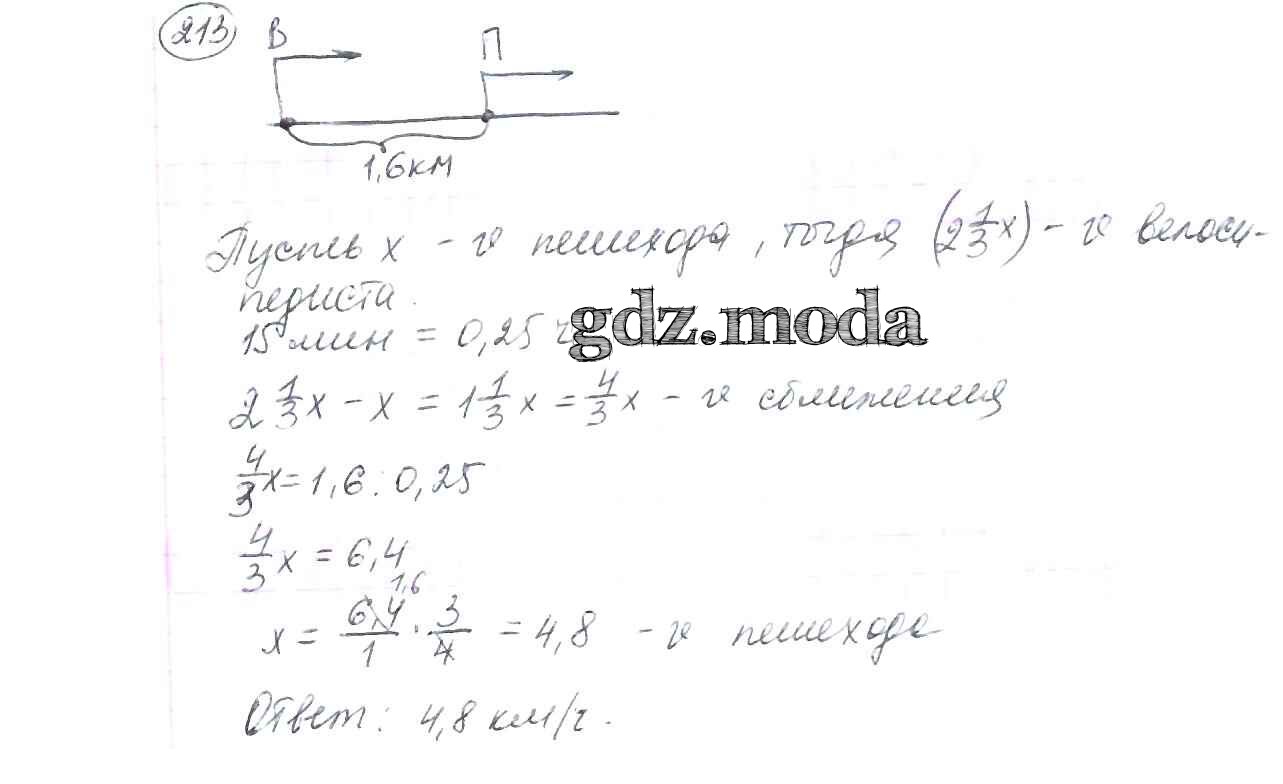 213
В П
1,6 км
Пусть x - v пешехода, тогда (2 1/3 x) - v велоси-
педиста.
15 мин = 0,25 ч
gdz.moda
2 1/3 x - x = 1 1/3 x = 4/3 x - v сближения
4/3 x = 1,6 : 0,25
4/3 x = 6,4
1,6
x = 6,4/1 · 3/4 = 4,8 - v пешехода
Ответ: 4,8 км/ч.